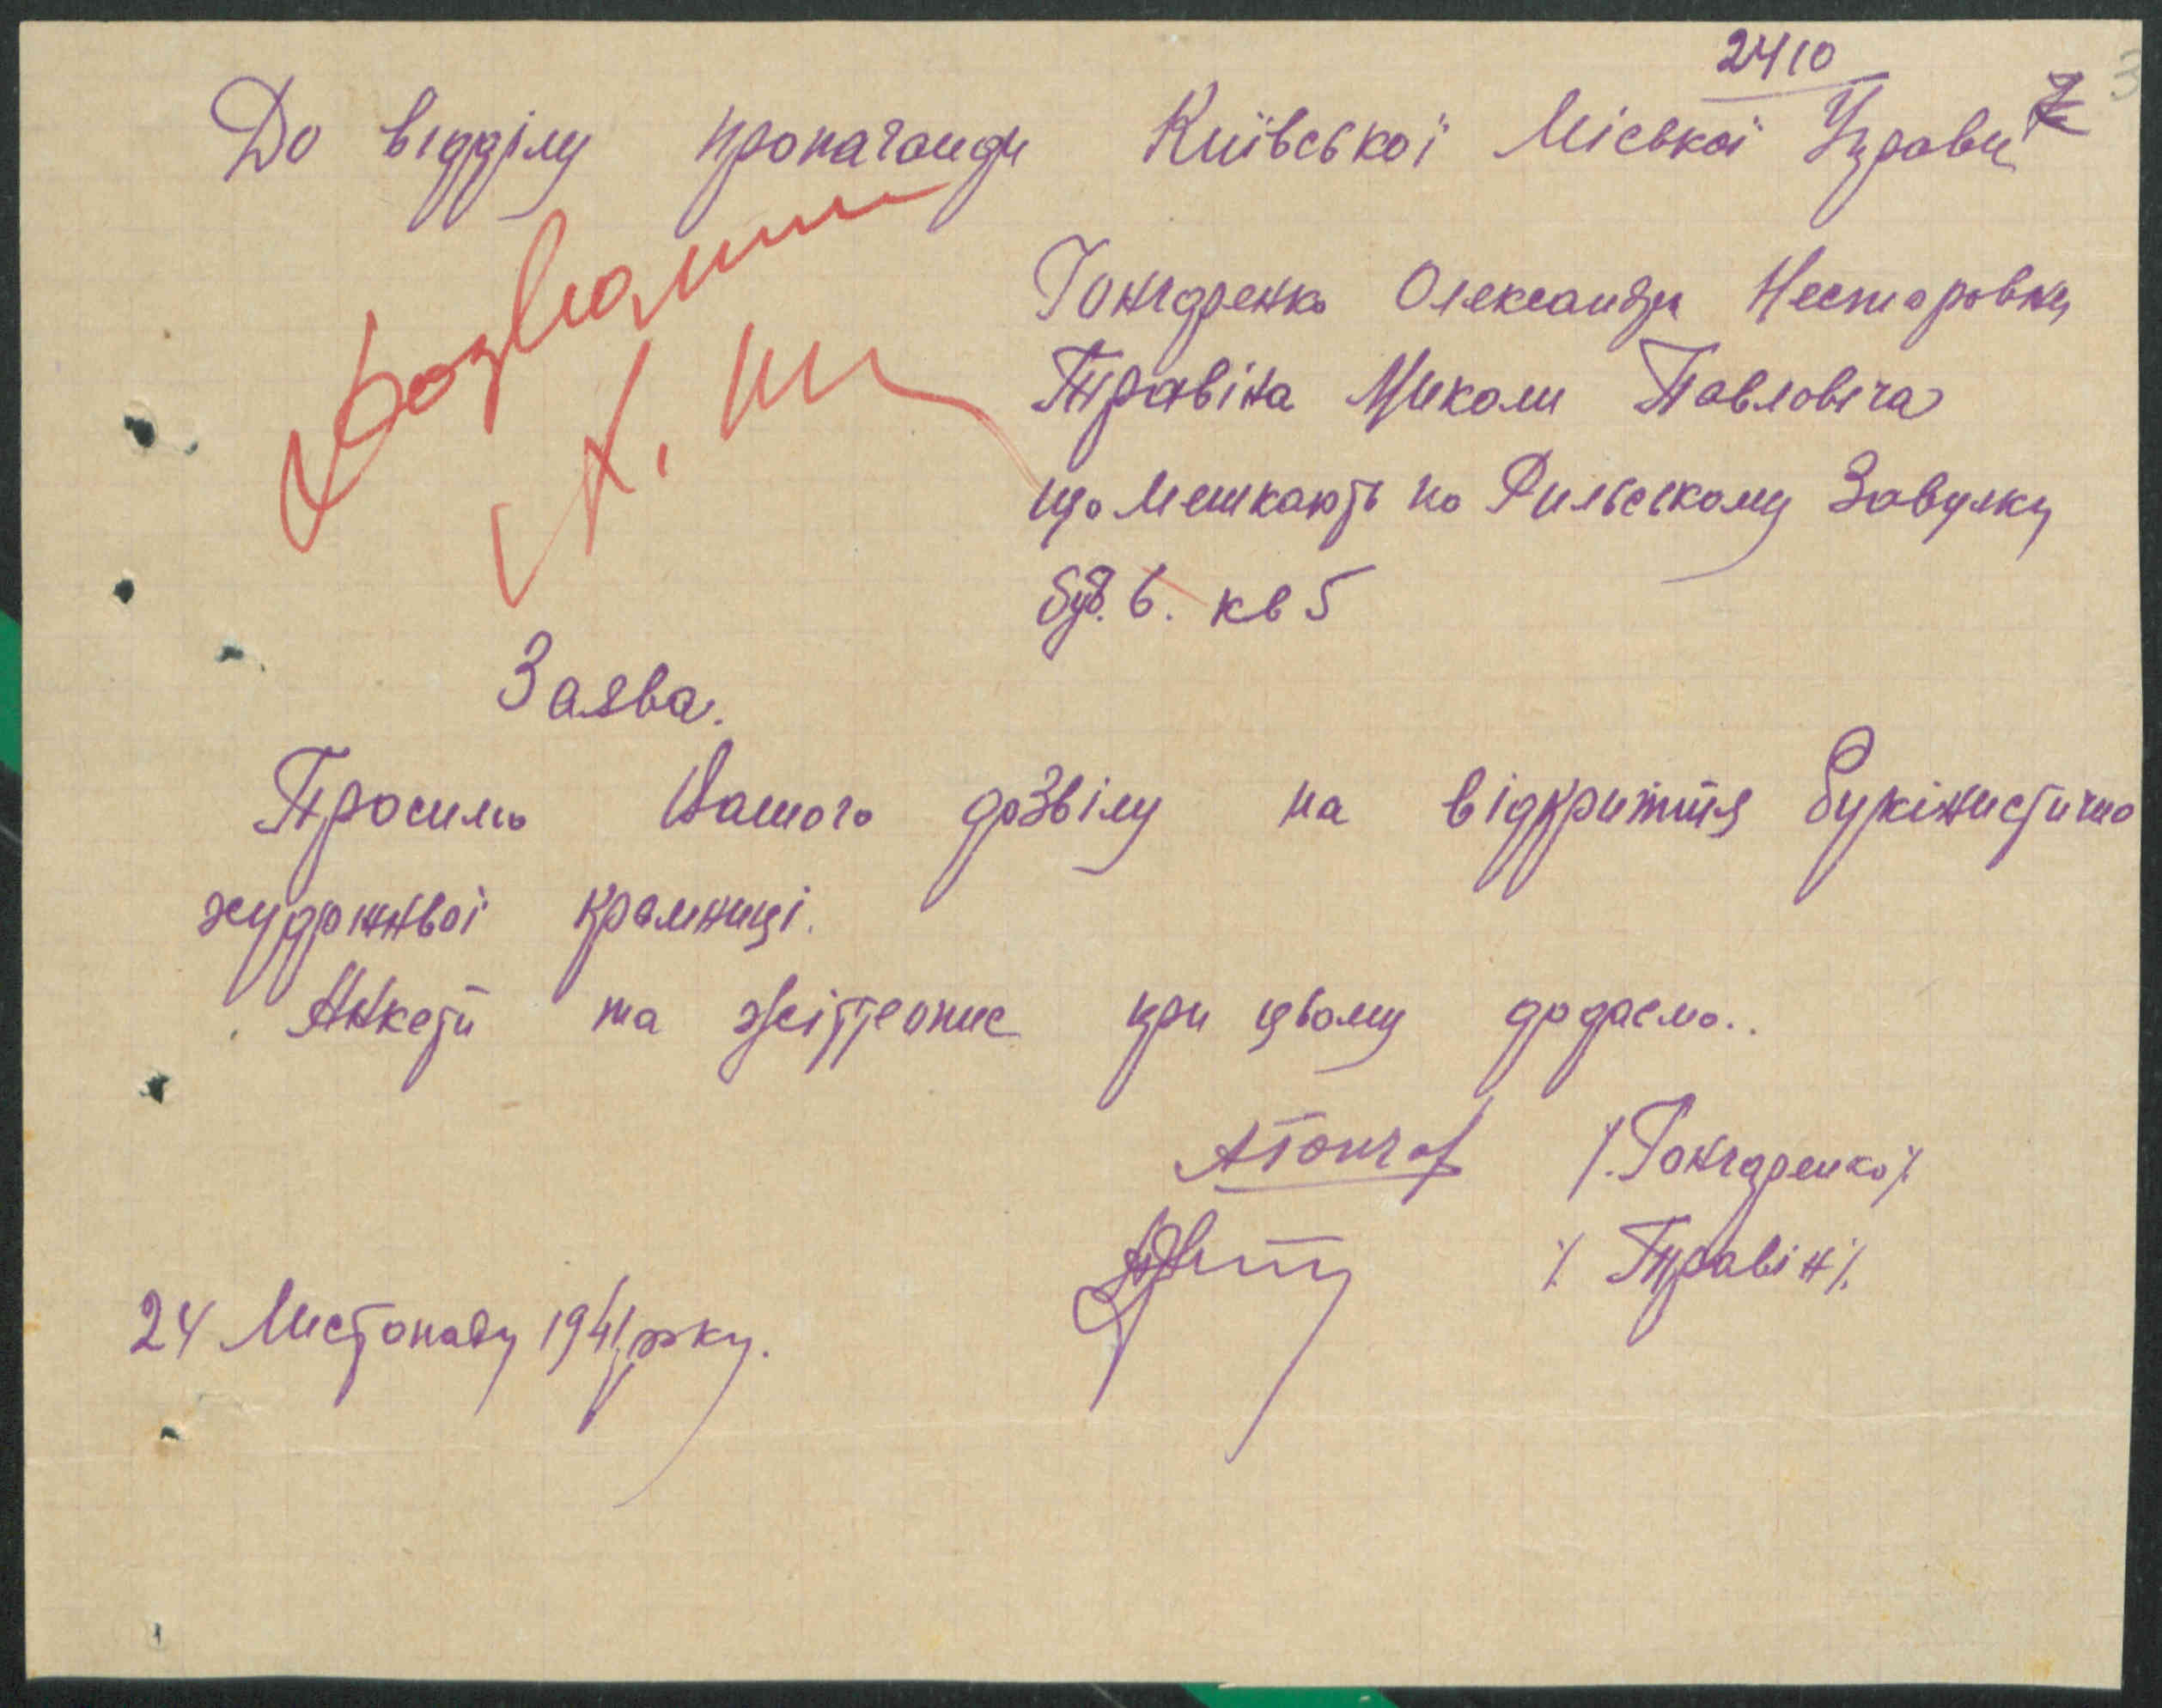 2410
До відділу пропаганди Київської Міської Управи
Гончаренко Олександри Несторовни
Травіна Миколи Павловича
що мешкають по Рильському Завулку
буд. 6. кв 5
Дозволити
Заява.
Просимо Вашого дозвілу на відкриття букіністично
художнвоі крамниці.
Анкети та жіттєопис при цьому додаємо..
АГонча /.Гончаренко/.
/. Травін/.
24 Листопаду 1941 року.